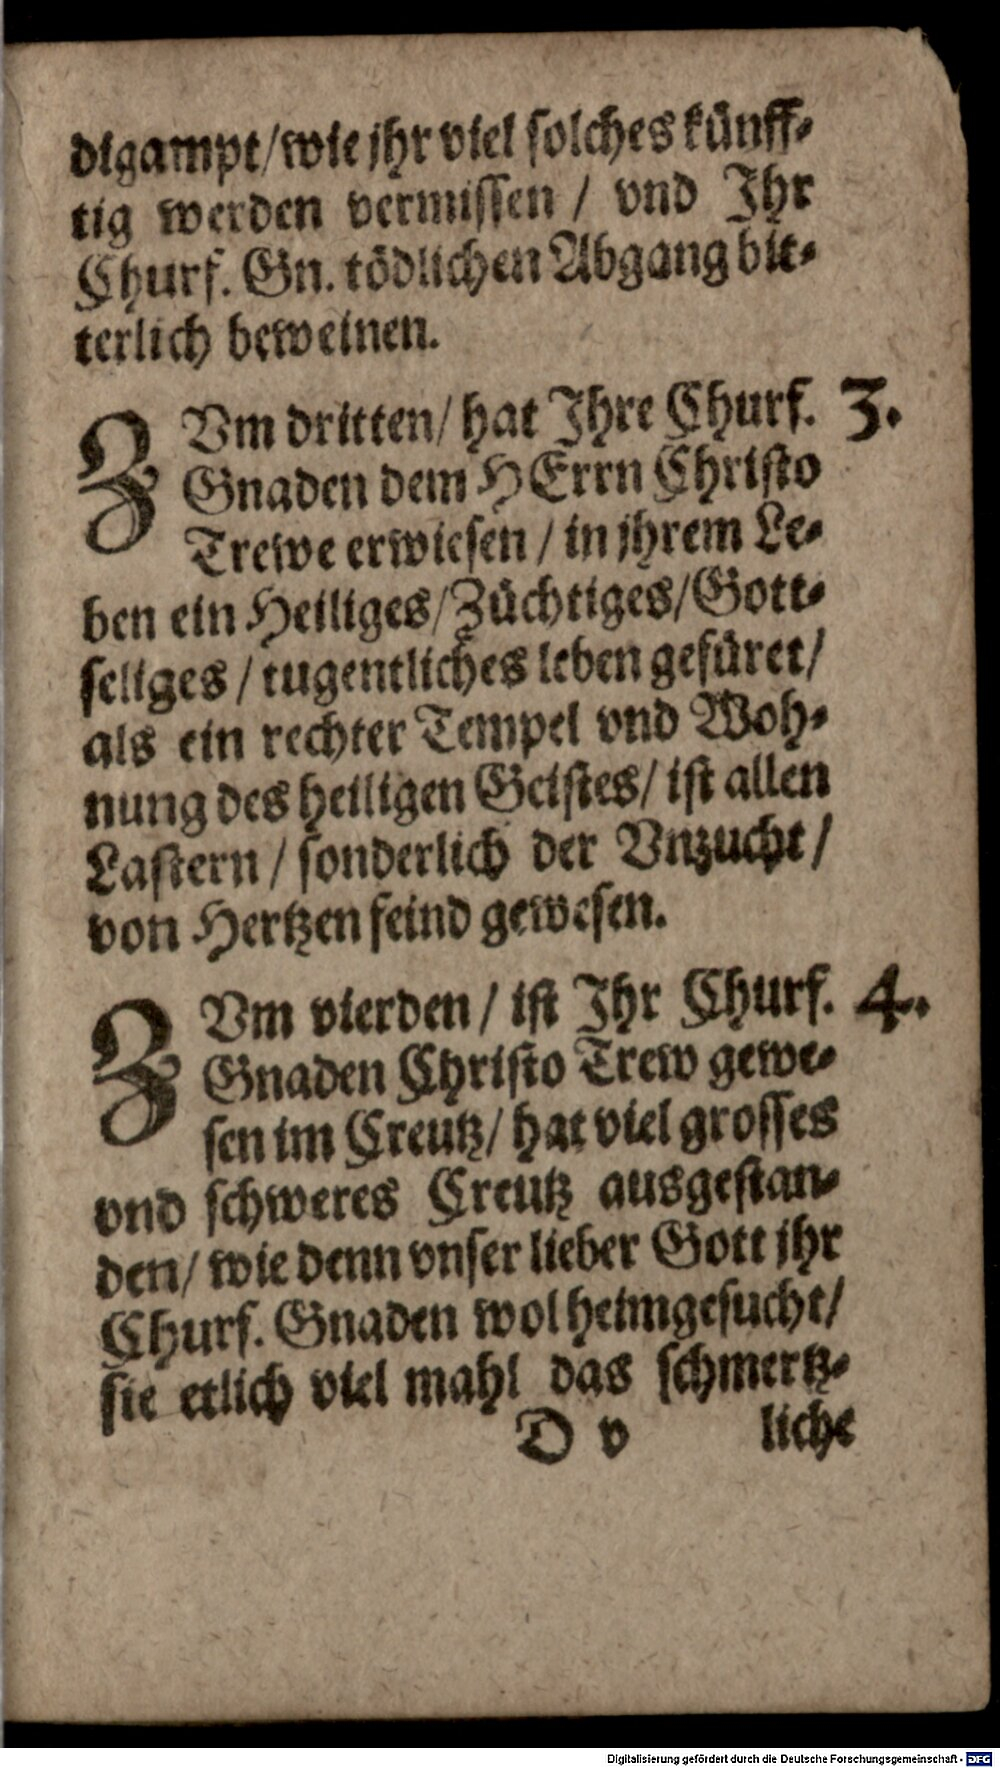 digampt/wie jhr viel solches künff-
tig werden vermissen / vnd Ihr
Churf. Gn. tödlichen Abgang bit-
terlich beweinen.
ZVm dritten/ hat Ihre Churf. 3.
Gnaden dem HErrn Christo
Trewe erwiesen / in jhrem Le-
ben ein Heiliges/Züchtiges/Gott-
seliges / tugentliches leben gefüret/
als ein rechter Tempel vnd Woh-
nung des heiligen Geistes/ ist allen
Lastern / sonderlich der Vnzucht/
von Hertzen feind gewesen.
ZVm vierden / ist Ihr Churf. 4.
Gnaden Christo Trew gewe-
sen im Creutz/ hat viel grosses
vnd schweres Creutz ausgestan-
den/ wie denn vnser lieber Gott jhr
Churf. Gnaden wol heimgesucht/
sie etlich viel mahl das schmertz-
D v liche
Digitalisierung gefördert durch die Deutsche Forschungsgemeinschaft - DFG